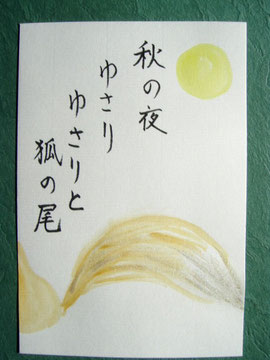 秋の夜
ゆさり
ゆさりと
狐の尾